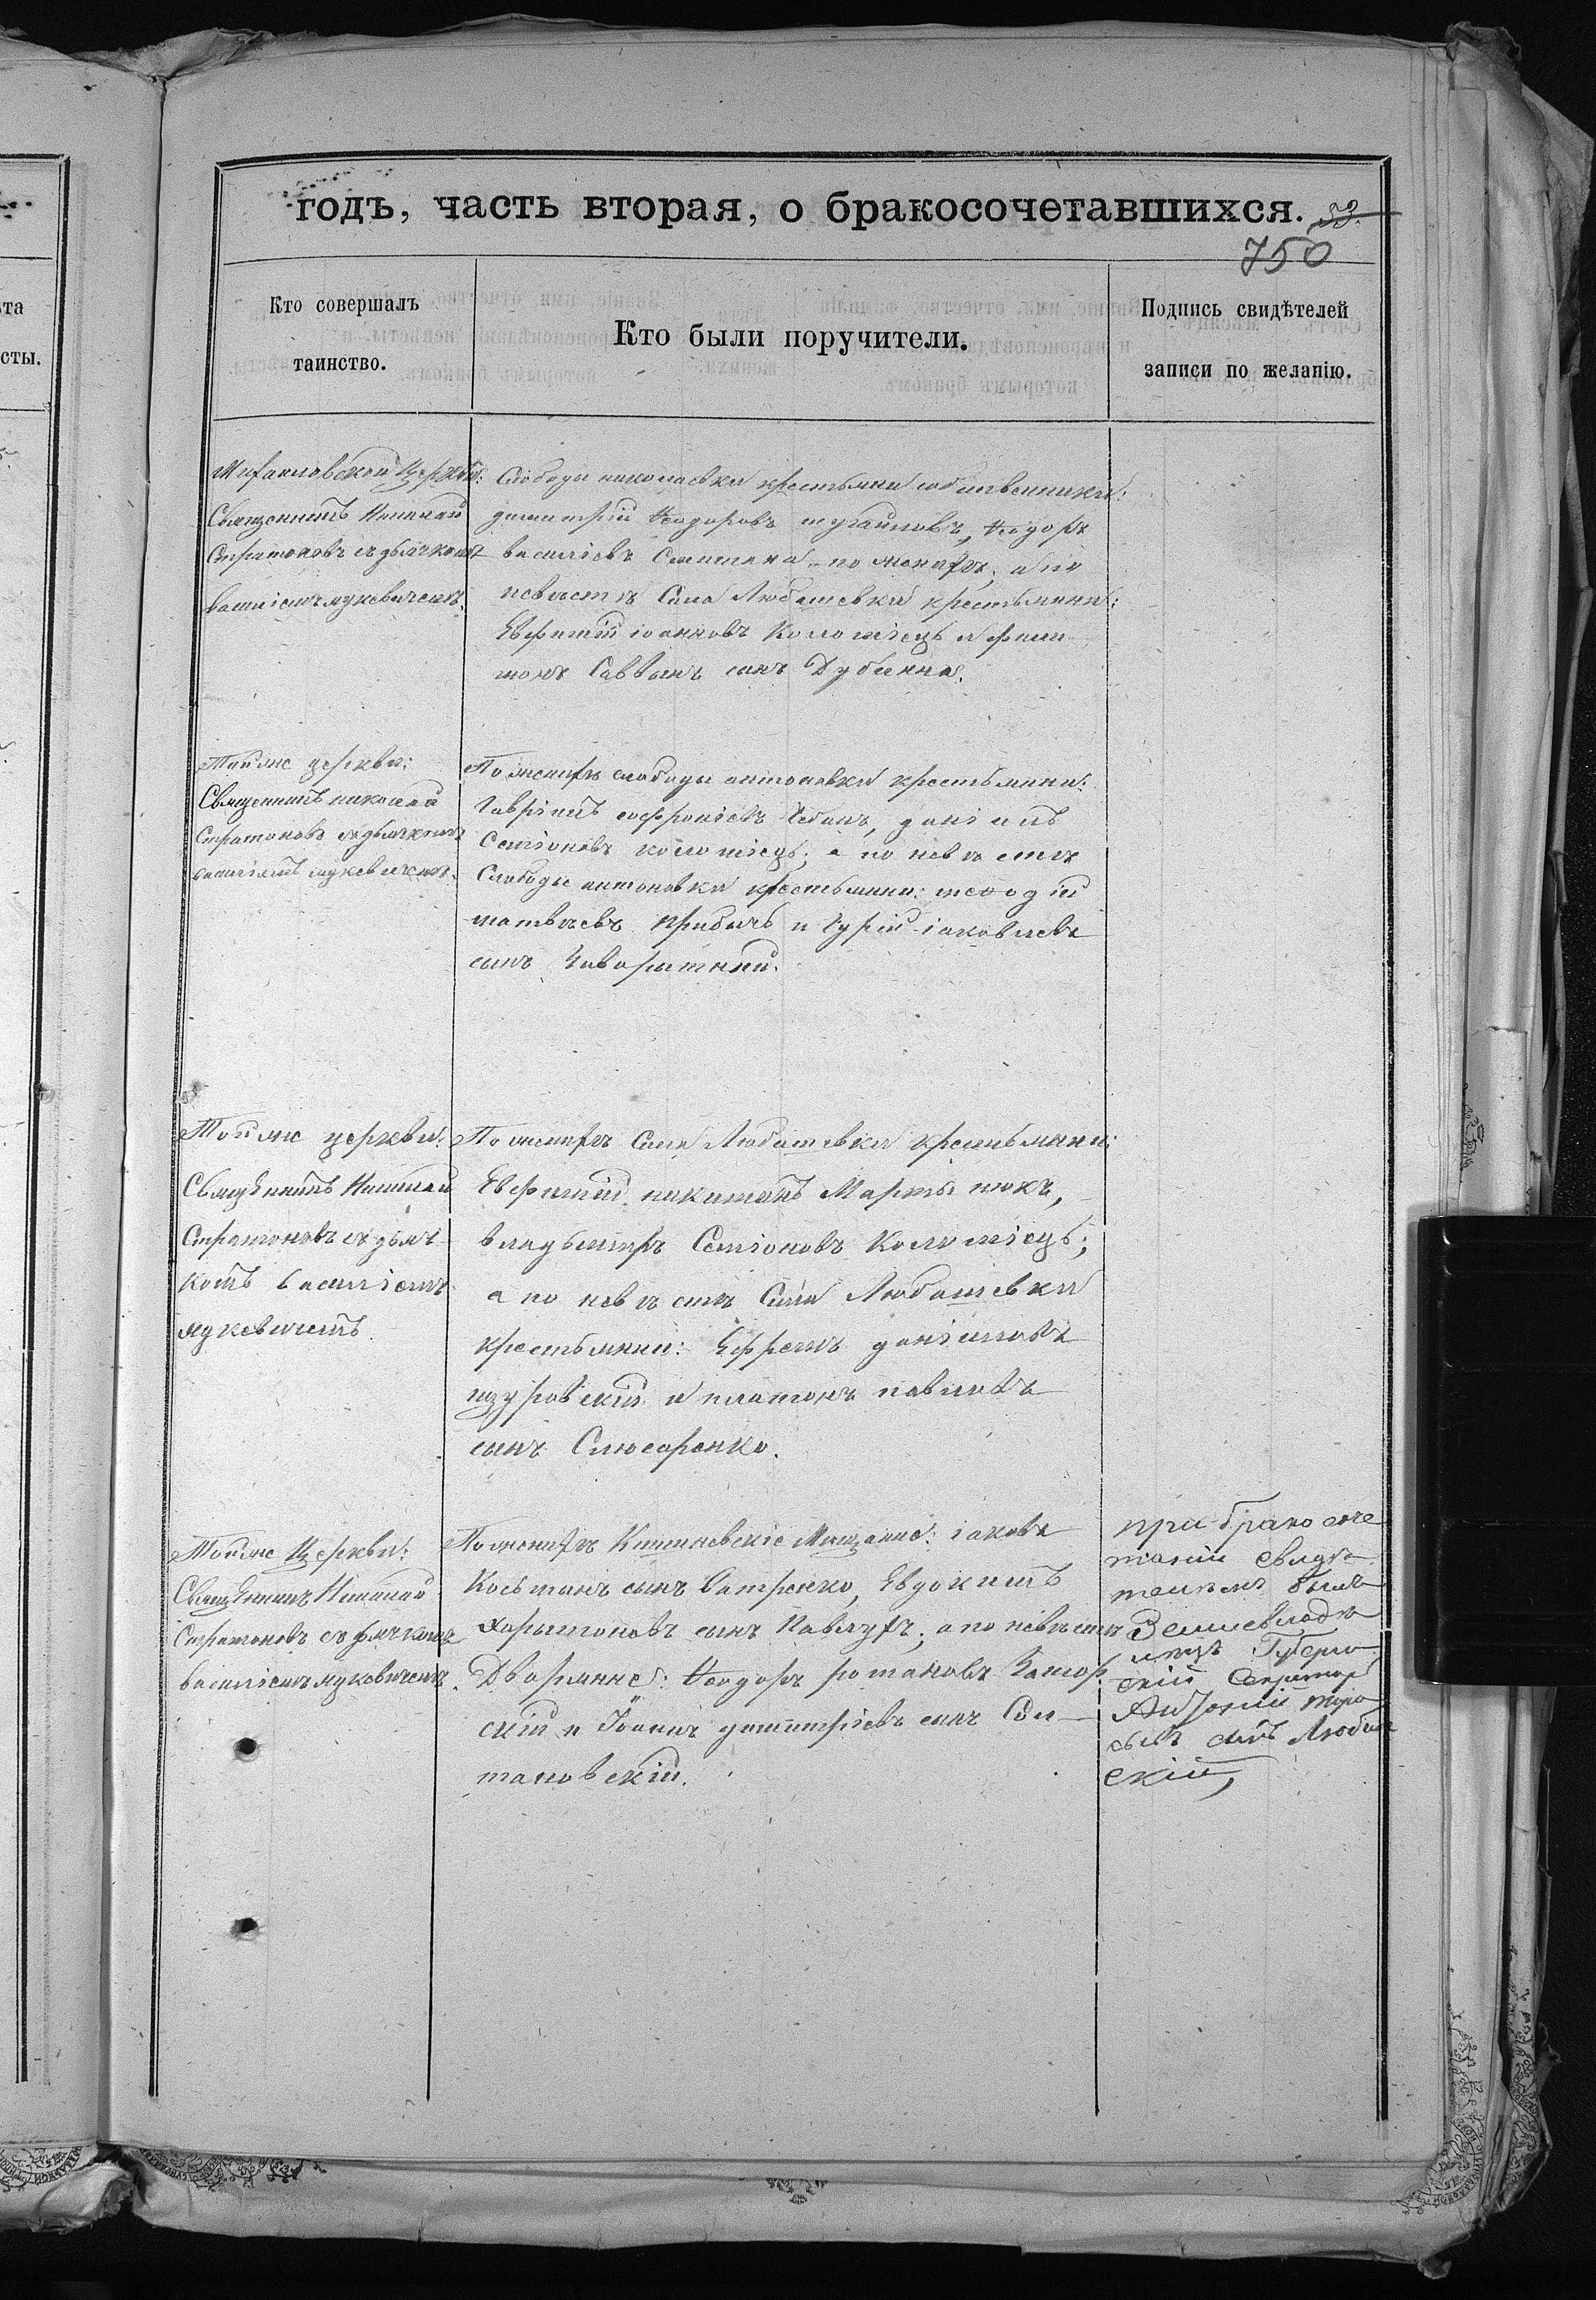 та
сты.
годъ, часть вторая, о бракосочетавшихся. 53.
750
Кто совершалъ
таинство.
Кто были поручители.
Подпись свидѣтелей
записи по желанію.
Михаиловской Церкви:
Священникъ Николай
Стратоновъ съ дьячкомъ
василіемъ
Слободы николаевки крестьяни собственники:
димитрій Ѳеодоровъ Ѳеодоръ
василіевъ по женихѣ; а по
невѣстѣ Села Любашевки крестьяни:
Евфимій іоанновъ Коломіецъ и
Саввинъ сынъ Дубинка.
Тойже церкви:
Священникъ николай
Стратоновъ съ дьячкомъ
василіемъ
По женихѣ слободы антоновки крестьяни:
Гавріилъ софроніевъ Чебанъ, даніилъ
Семіоновъ коломіецъ; а по невѣстѣ
Слободы антоновки крестьяни: меѳодій
матвѣевъ и Гурій іаковлевъ
сынъ
Тойже церкви:
Священникъ Николай
Стратоновъ съ дьяч
комъ василіемъ
По женихѣ Села Любашевки крестьяни:
Евфимій никитинъ Мартынюкъ,
владьміръ Семіоновъ Коломіецъ;
а по невѣстѣ Села Любашевки
крестьяни: Ефремъ даніиловъ
и платонъ павловъ
сынъ Слюсаренко.
Тойже Церкви:
Священникъ Николай
Стратоновъ съ дьячкомъ
василіемъ
По женихѣ Кишиневскіе Мищане: іаковъ
Косьминъ сынъ Ватренко, Евдокимъ
Харитоновъ сынъ а по невѣстѣ
Дворянне: Ѳеодоръ романовъ
скій и Іоаннъ димитріевъ сынъ Сом
тановскій.
при бракосоче
таніи свидѣ
телемъ былъ
Землевладѣ
лецъ Губерн
скій Секретарь
Антоній
сынъ
скій,